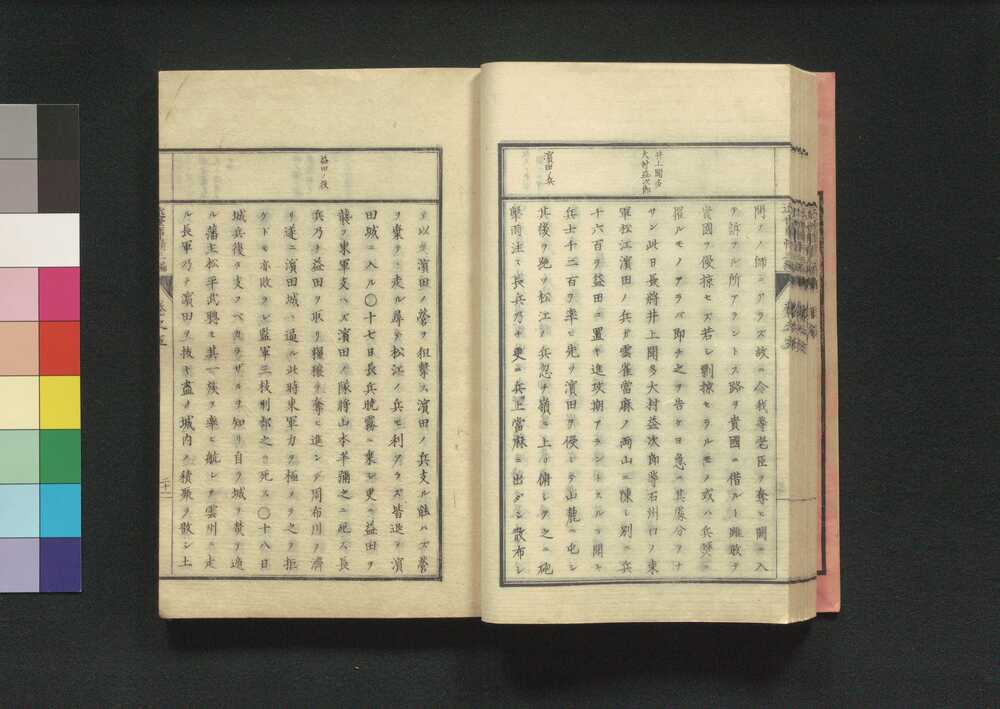 井上聞多
大村益次郎
濱田ノ兵
問フノ師ニアラズ故ニ今我等老臣ヲ奪ヒ聞ニ入
ヲ訴フル所アラントス路ヲ貴國ニ借ルト雖敢テ
貴國ヲ侵掠セズ若シ剽掠セラルモノ或ハ兵燹ニ
罹ルモノアラバ即チ之ヲ告ケヨ急ニ其處分ヲナ
サン此日長將井上聞多大村益次郎等石州口ノ東
軍松江濱田ノ兵ガ雲雀當麻ノ両山ニ陳シ別ニ兵
千六百ヲ益田ニ置キ進攻期アラントスルヲ聞キ
兵士千二百ヲ率ヒ先ヲ濱田ヲ侵シテ山麓ニ屯シ
其後ヲ絶ヲ松江ノ兵忍チ嶺ニ上リ俯シテ之ニ砲
撃雨注ス長兵乃チ更ニ兵上當麻ニ出ダシ散布シ
益田ノ役
テ以テ濱田ノ營ヲ狙撃ス濱田ノ兵支ル能ハズ營
ヲ棄テヽ走ル尋テ松江ノ兵モ利アラズ皆退テ濱
田城ニ入ル〇十七日長兵暁霧ニ乗シ更ニ益田ヲ
襲ヲ東軍支ハズ濱田ノ隊將山本半彌之ニ死ス長
兵乃チ益田ヲ取リ糧穰ヲ奪ヒ進ンデ周布川ヲ濟
リ遂ニ濱田城ニ逼ル此時東軍力ヲ極メ之ヲ拒
グドモ亦敗ヲレ監軍三枝刑部之ニ死ス〇十八日
城兵復ヲ支フベカラザルヲ知リ自ラ城ヲ焚テ遁
ル藩主松平武聰モ其一族ヲ率ヒ航シテ雲州ニ走
ル長軍乃チ濱田ヲ抜キ盡ク城内ノ積聚ヲ散シ土